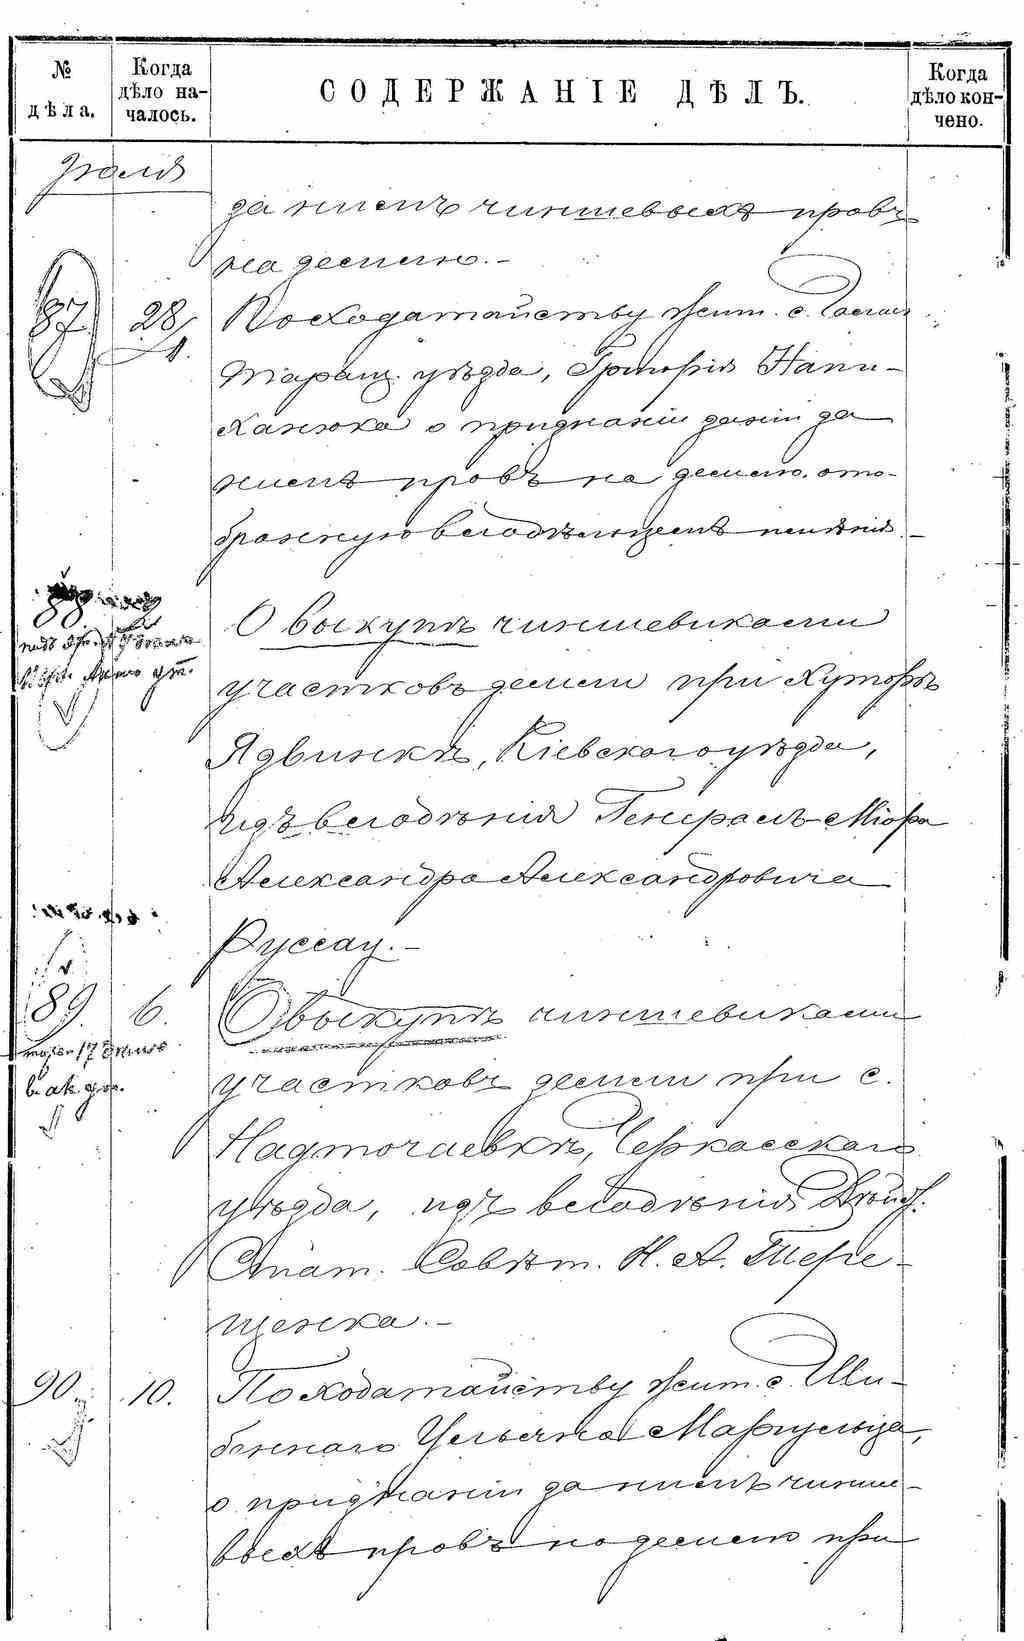 № дѣла.
Когда дѣло началось.
СОДЕРЖАНІЕ ДѢЛЪ.
Когда дѣло кончено.
Іюля
за нимъ чиншевыхъ правъ
на землю.-
87. 28. По ходатайству жит. с.
Таращ. уѣзда, Григорія
о признаніи за
нимъ правъ на землю, ото-
бранную владѣльцемъ имѣнія.-
88. О выкупѣ чиншевиками
участковъ земли при хуторѣ
Ядвинкѣ, Кіевскаго уѣзда,
изъ владѣнія Генералъ-Маіора
Александра Александровича
Руссау.-
89. 6. О выкупѣ чиншевиками
участковъ земли при с.
Надточаевкѣ, Черкасскаго
уѣзда, изъ владѣнія Дѣйст.
Стат. Совѣт. Н. А. Тере-
щенка.-
90. 10. По ходатайству жит. с. Ши-
беннаго Ульяна Маргульца,
о признаніи за нимъ чинше-
выхъ правъ на землю при